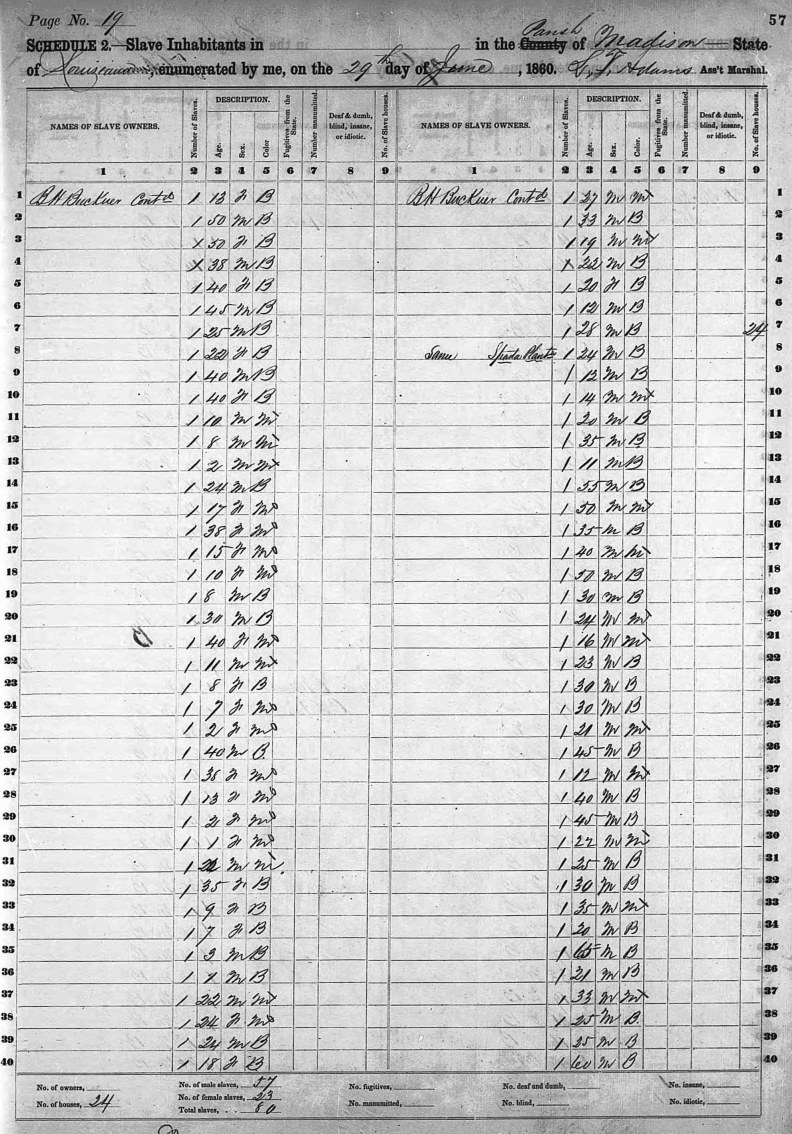 Page No. 19
57
SCHEDULE 2.—Slave Inhabitants in in the County Parish of Madison State
of Louisiana, enumerated by me, on the 29th day of June, 1860. Adams Ass't Marshal.
NAMES OF SLAVE OWNERS. Number of Slaves. DESCRIPTION. Age. Sex. Color. Fugitives from the State. Number manumitted. Deaf & dumb, blind, insane, or idiotic. No. of Slave houses. NAMES OF SLAVE OWNERS. Number of Slaves. DESCRIPTION. Age. Sex. Color. Fugitives from the State. Number manumitted. Deaf & dumb, blind, insane, or idiotic. No. of Slave houses.
1 2 3 4 5 6 7 8 9 1 2 3 4 5 6 7 8 9
1 B H Buckner Contd 1 13 F B B H Buckner Contd 1 27 M M 1
2 1 50 M B 1 33 M B 2
3 1 50 F B 1 19 M M 3
4 1 38 M B 1 22 M B 4
5 1 40 F B 1 20 F B 5
6 1 45 M B 1 12 M B 6
7 1 25 M B 1 28 M B 24 7
8 1 22 F B Same 1 24 M B 8
9 1 40 M B 1 12 M B 9
10 1 40 F B 1 14 M M 10
11 1 10 M M 1 20 M B 11
12 1 8 M M 1 35 M B 12
13 1 2 M M 1 11 M B 13
14 1 24 M B 1 55 M B 14
15 1 17 F M 1 50 M M 15
16 1 38 F M 1 35 M B 16
17 1 15 F M 1 40 M M 17
18 1 10 F M 1 50 M B 18
19 1 8 M B 1 30 M B 19
20 1 30 M B 1 24 M M 20
21 1 40 F M 1 16 M M 21
22 1 11 M M 1 23 M B 22
23 1 8 F B 1 30 M B 23
24 1 7 F M 1 30 M B 24
25 1 2 F M 1 21 M M 25
26 1 40 M B 1 45 M B 26
27 1 38 F M 1 12 M M 27
28 1 13 F M 1 40 M B 28
29 1 2 F M 1 45 M B 29
30 1 1 F M 1 22 M M 30
31 1 M M 1 25 M B 31
32 1 35 F B 1 30 M B 32
33 1 9 F B 1 35 M M 33
34 1 7 F B 1 20 M B 34
35 1 3 M B 1 65 M B 35
36 1 1 M B 1 21 M B 36
37 1 22 M M 1 33 M M 37
38 1 24 F M 1 25 M B 38
39 1 24 M B 1 25 M B 39
40 1 18 F B 1 60 M B 40
No. of owners, No. of male slaves, 57 No. fugitives, No. deaf and dumb, No. insane,
No. of houses, 24 No. of female slaves, 23 No. manumitted, No. blind, No. idiotic,
Total slaves, 80